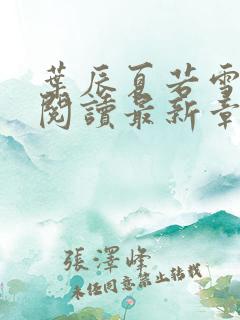 葉辰夏若雪
閱讀最新章
張澤峰
未經同意禁止轉載